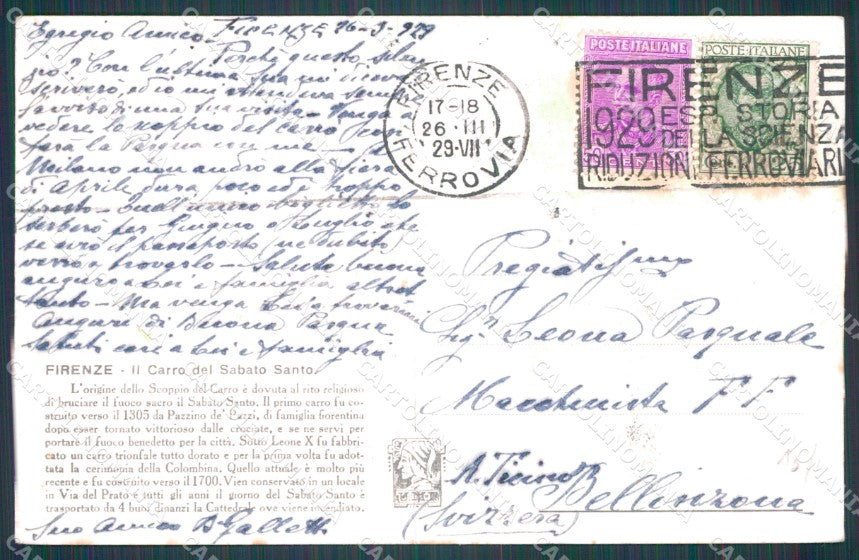 FIRENZE 26-3-929
Egregio Amico -
Perchè questo silen
zio? Con l'ultima Sua mi diceva
scriverò, ed io mi attendevo
favorisse una sua visita - Venga a
vedere lo scoppio del Carro
farà la Pasqua con me -
Milano non andrò alla fiera
di Aprile dura poco ed è troppo
presto -
serberò per Giugno o Luglio che
se avrò il passaporto ne subito
verrò a trovarlo - Saluti buona
auguro a Lei e famiglia altret
tanto - Ma venga Lei a trovarmi
Auguri di Buona Pasqua
Saluti cari a Lei e famiglia
FIRENZE - Il Carro del Sabato Santo.
L'origine dello Scoppio del Carro è dovuta al rito religioso
di bruciare il fuoco sacro il Sabato Santo. Il primo carro fu co-
struito verso il 1305 da Pazzino de' Pazzi, di famiglia fiorentina
dopo esser tornato vittorioso dalle crociate, e se ne servì per
portare il fuoco benedetto per la città. Sotto Leone X fu fabbri-
cato un carro trionfale tutto dorato e per la prima volta fu adot-
tata la cerimonia della Colombina. Quello attuale è molto più
recente e fu costruito verso il 1700. Vien conservato in un locale
in Via del Prato e tutti gli anni il giorno del Sabato Santo è
trasportato da 4 buoi dinanzi la Cattedrale ove viene incendiato.
Suo Amico B Galletti
FIRENZE
17-18
26 · III
29·VII
FERROVIA
POSTE ITALIANE
POSTE·ITALIANE
FIRENZE
1929 ESP. STORIA
DELLA SCIENZA
RIDUZIONI FERROVIARIE
Pregiatissimo
Sigr Leona Pasquale
Macchinista F F
A. Ticino
Bellinzona
(Svizzera)
CARTOLINOMANIA